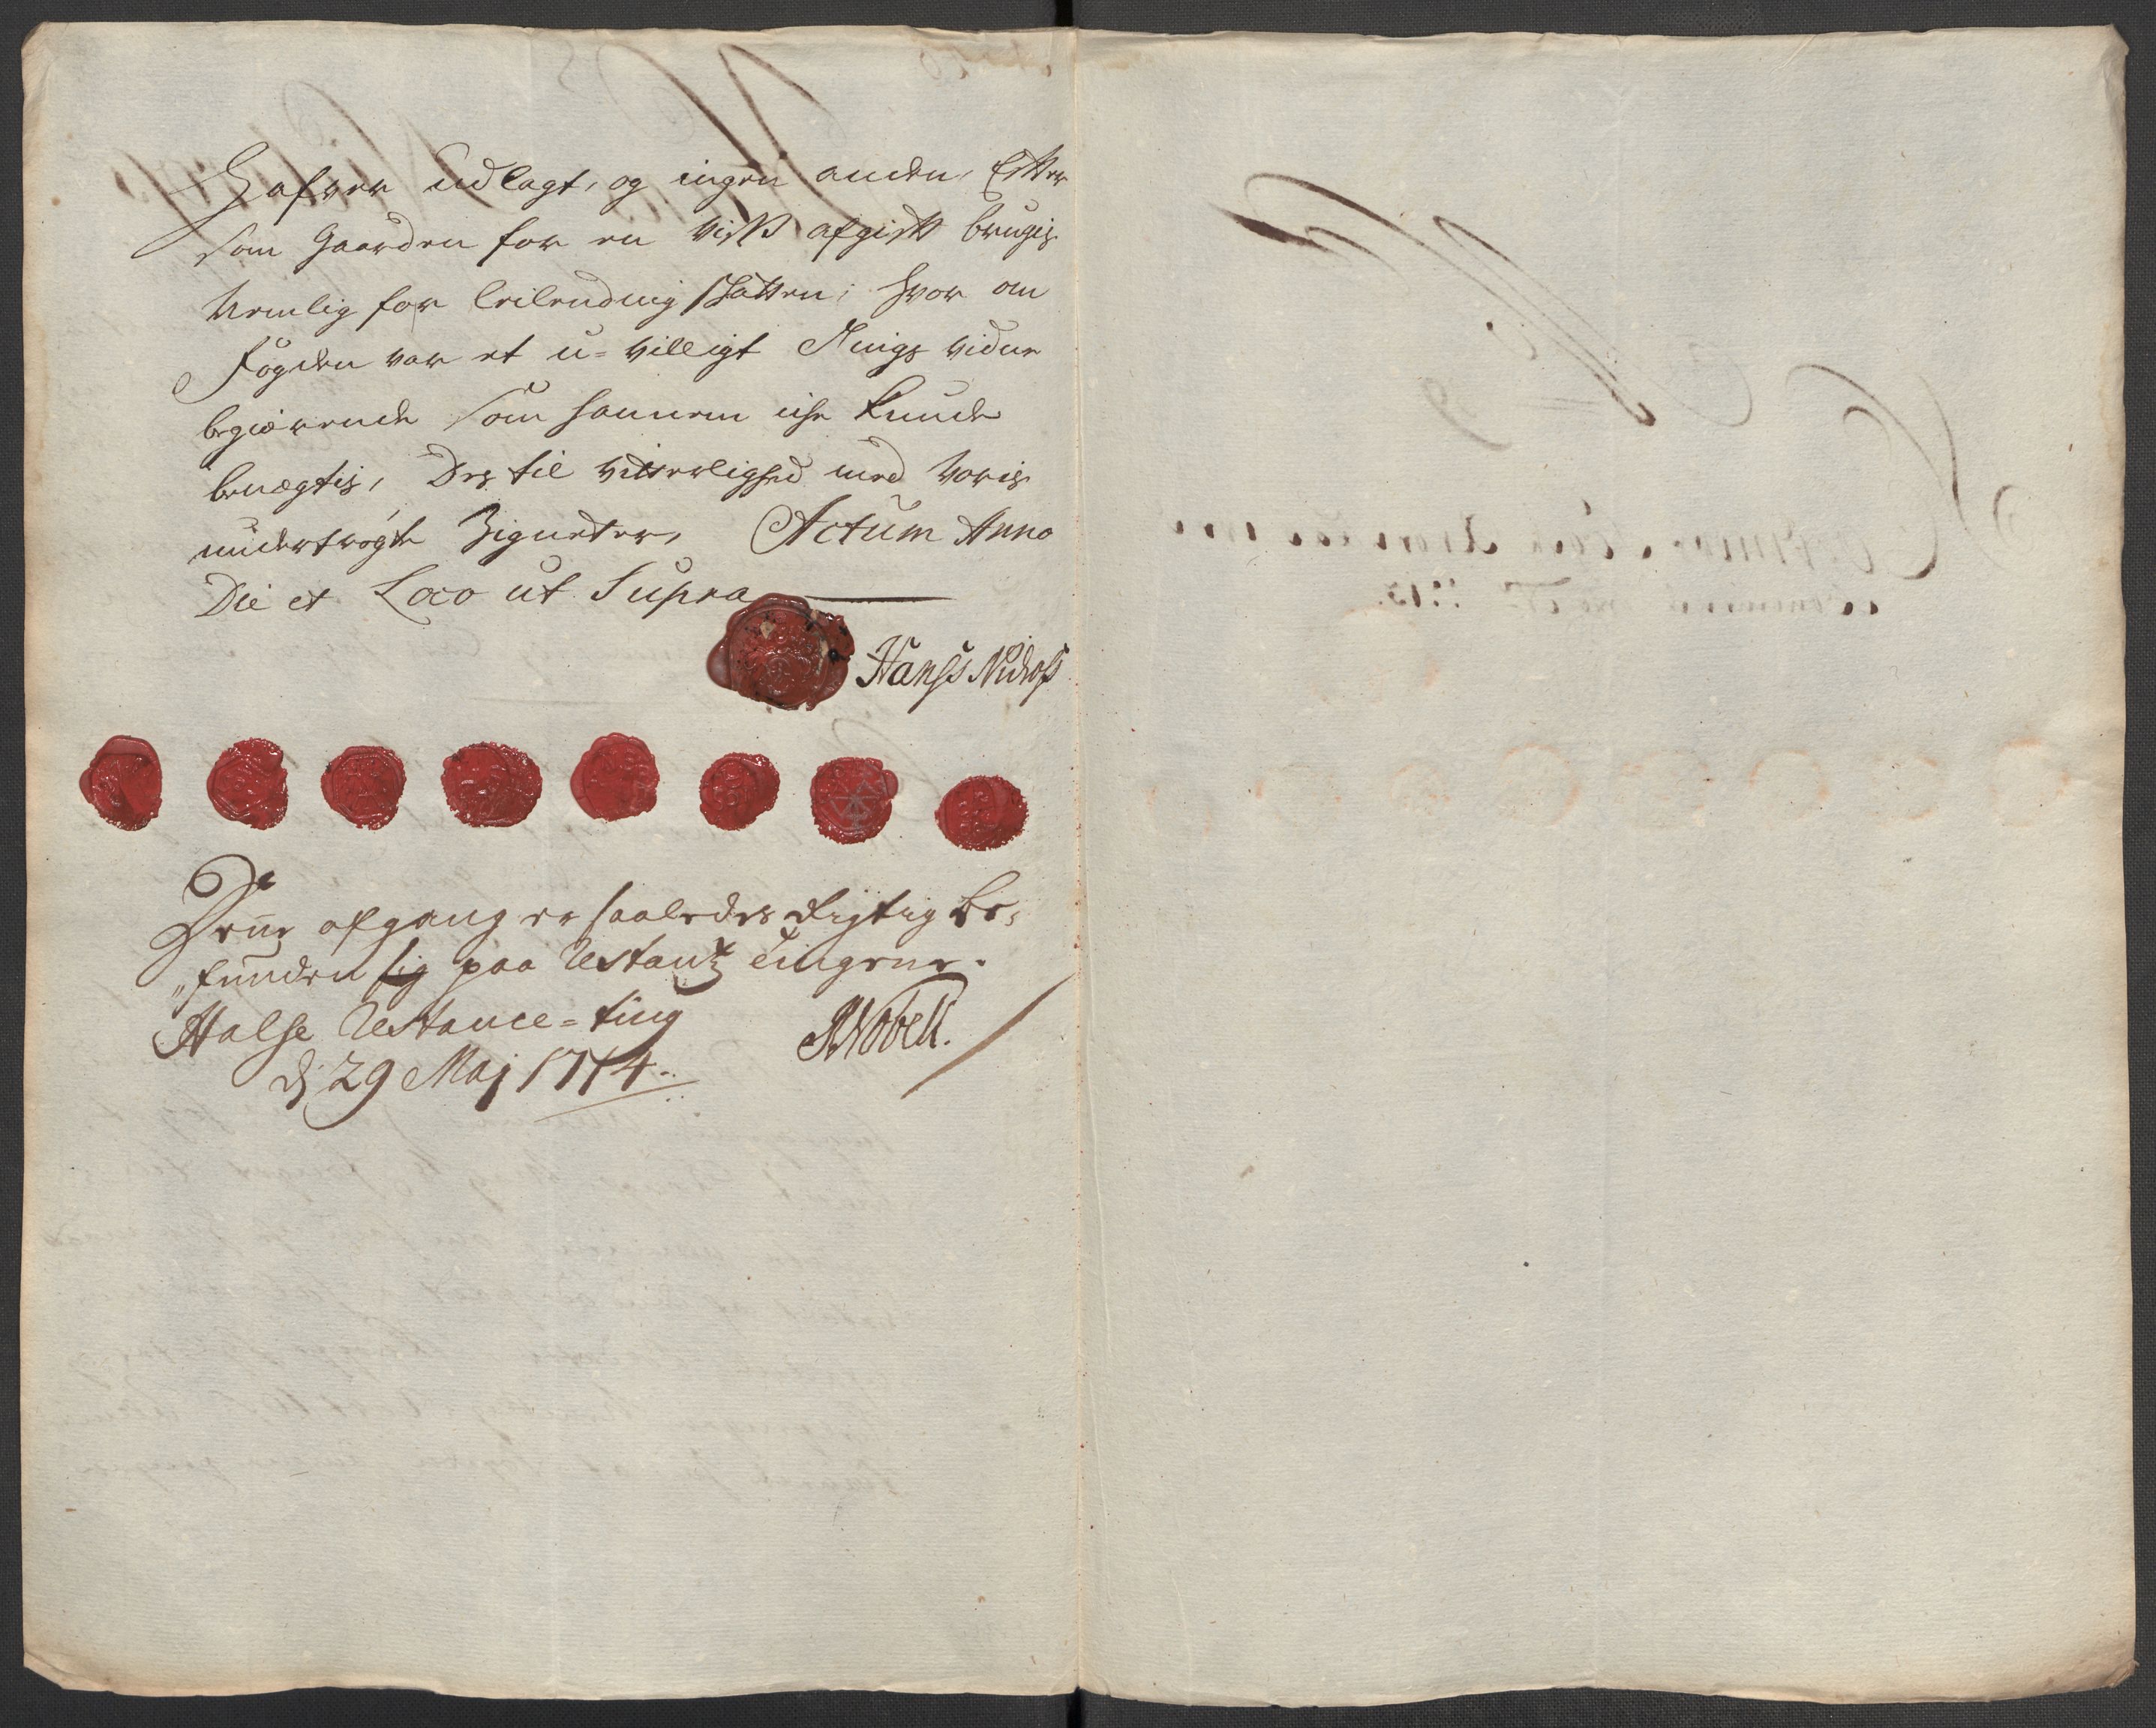 Hafver Udlagt, og ingen anden, Efter
som Gaarden for en viss afgift brugis
Nemlig for leilending skatten; hvor om
Fogden var et u-villigt Tings vidne
begiærende som hannem iche kunde
benægtis, Des til vitterlighed med voris
undertrøgte Zigneter, Actum Anno
Die et Loco ut Supra
Hanss Nidross
Denne afgang er saaledes Rigtig be-
funden sig paa Restantz tingene.
Halse Restance-ting
d 29 Maj 1714.